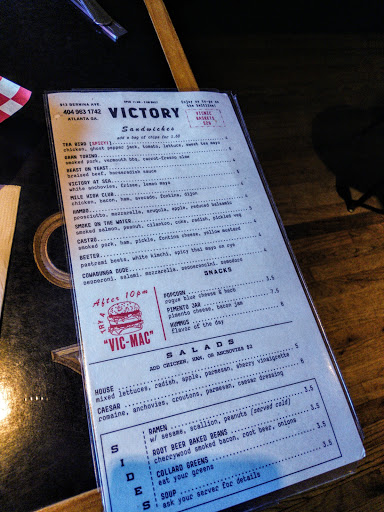 913 BERNINA AVE.
404 963 1742
ATLANTA GA.
VICTORY
Enjoy us to-go on
the beltline!
PICNIC
BASKETS
$20
Sandwiches
add a bag of chips for 1.50
TEA BIRD [SPICY]
chicken, ghost pepper jack, tomato, lettuce, sweet tea mayo
DAMN TORINO
smoked pork, vermouth bbq, carrot-fresno slaw
BEAST ON YEAST
braised beef, horseradish sauce
VICTORY AT SEA
white anchovies, frisse, lemon mayo
MILE HIGH CLUB
chicken, bacon, ham, avocado, fontina, cajun
HAMBO
prosciutto, mozzarella, arugula, apple, reduced balsamic
SMOKE ON THE WATER
smoked salmon, peanut, cilantro, cuke, radish, pickled veg
CASTRO
smoked pork, ham, pickle, fontina cheese, yellow mustard
BEETER
pastrami beets, white kimchi, spicy thai mayo on rye
COWABUNGA DUDE
pepperoni, salami, mozzarella, pepperoncini, samoduro
SNACKS
After 10pm
TRY A
"VIC-MAC"
POPCORN 3.5
rogue blue cheese & herb
PIMENTO JAR 7.5
pimento cheese, bacon jam
HUMMUS 8
flavor of the day
SALADS
ADD CHICKEN, HAM, OR ANCHOVIES $2
HOUSE 5
mixed lettuces, radish, apple, parmesan, sherry vinaigrette
CAESAR 6
romaine, anchovies, croutons, parmesan, caesar dressing
SIDES
RAMEN 3.5
w/ sesame, scallion, peanuts (served cold)
ROOT BEER BAKED BEANS 3.5
cherrywood smoked bacon, root beer, onions
COLLARD GREENS 3.5
eat your greens
SOUP 3.5
ask your server for details